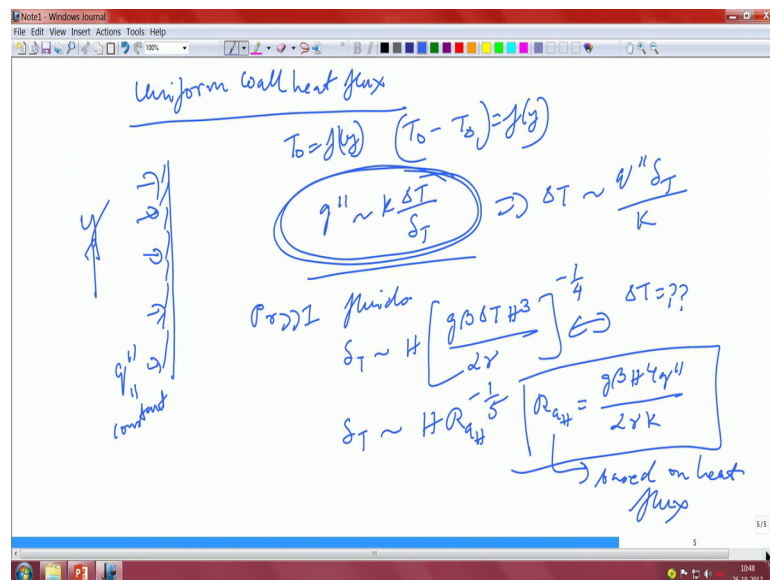 Note1 - Windows Journal
File Edit View Insert Actions Tools Help
100%
Uniform wall heat flux
T0 = f(y) (T0 - T∞) = f(y)
q'' ~ k ΔT/δT ⇒ ΔT ~ q'' δT / K
y
Pr>>1 fluids
δT ~ H [gβΔTH³ / αγ]^(-1/4) ⇔ ΔT = ??
q'' = constant
δT ~ H RaH^(-1/5) RaH = gβH⁴q'' / αγK
→ based on heat
flux
5/5
5
10:48
26-10-2017